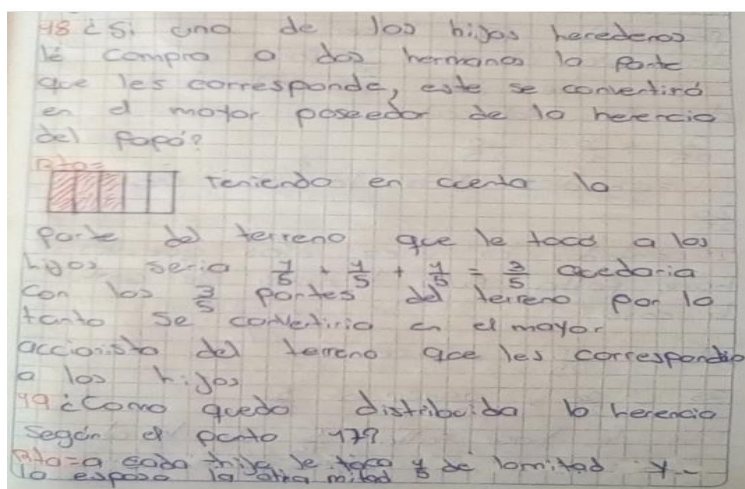 48 ¿Si uno de los hijos herederos
le compra a dos hermanos la parte
que les corresponde, este se convertirá
en el mayor poseedor de la herencia
del papá?
Rta=
Teniendo en cuenta la
parte del terreno que le toca a los
hijos seria 1/5 + 1/5 + 1/5 = 3/5 quedaria
con las 3/5 partes del terreno por lo
tanto se convertiria en el mayor
accionista del terreno que les correspondio
a los hijos
49 ¿Como quedo distribuida la herencia
Según el punto 47?
Rta=a cada hijo le toca 1/5 de la mitad y -
la esposa la otra mitad